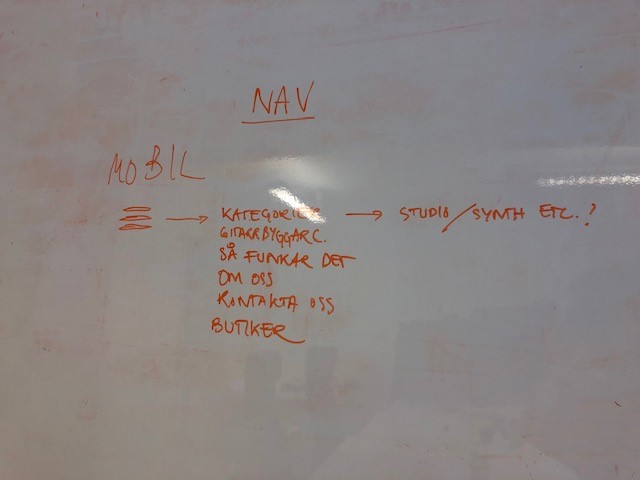 NAV
MOBIL
KATEGORIER → STUDIO/SYNTH ETC.?
GITARRBYGGARE.
SÅ FUNKAR DET
OM OSS
KONTAKTA OSS
BUTIKER